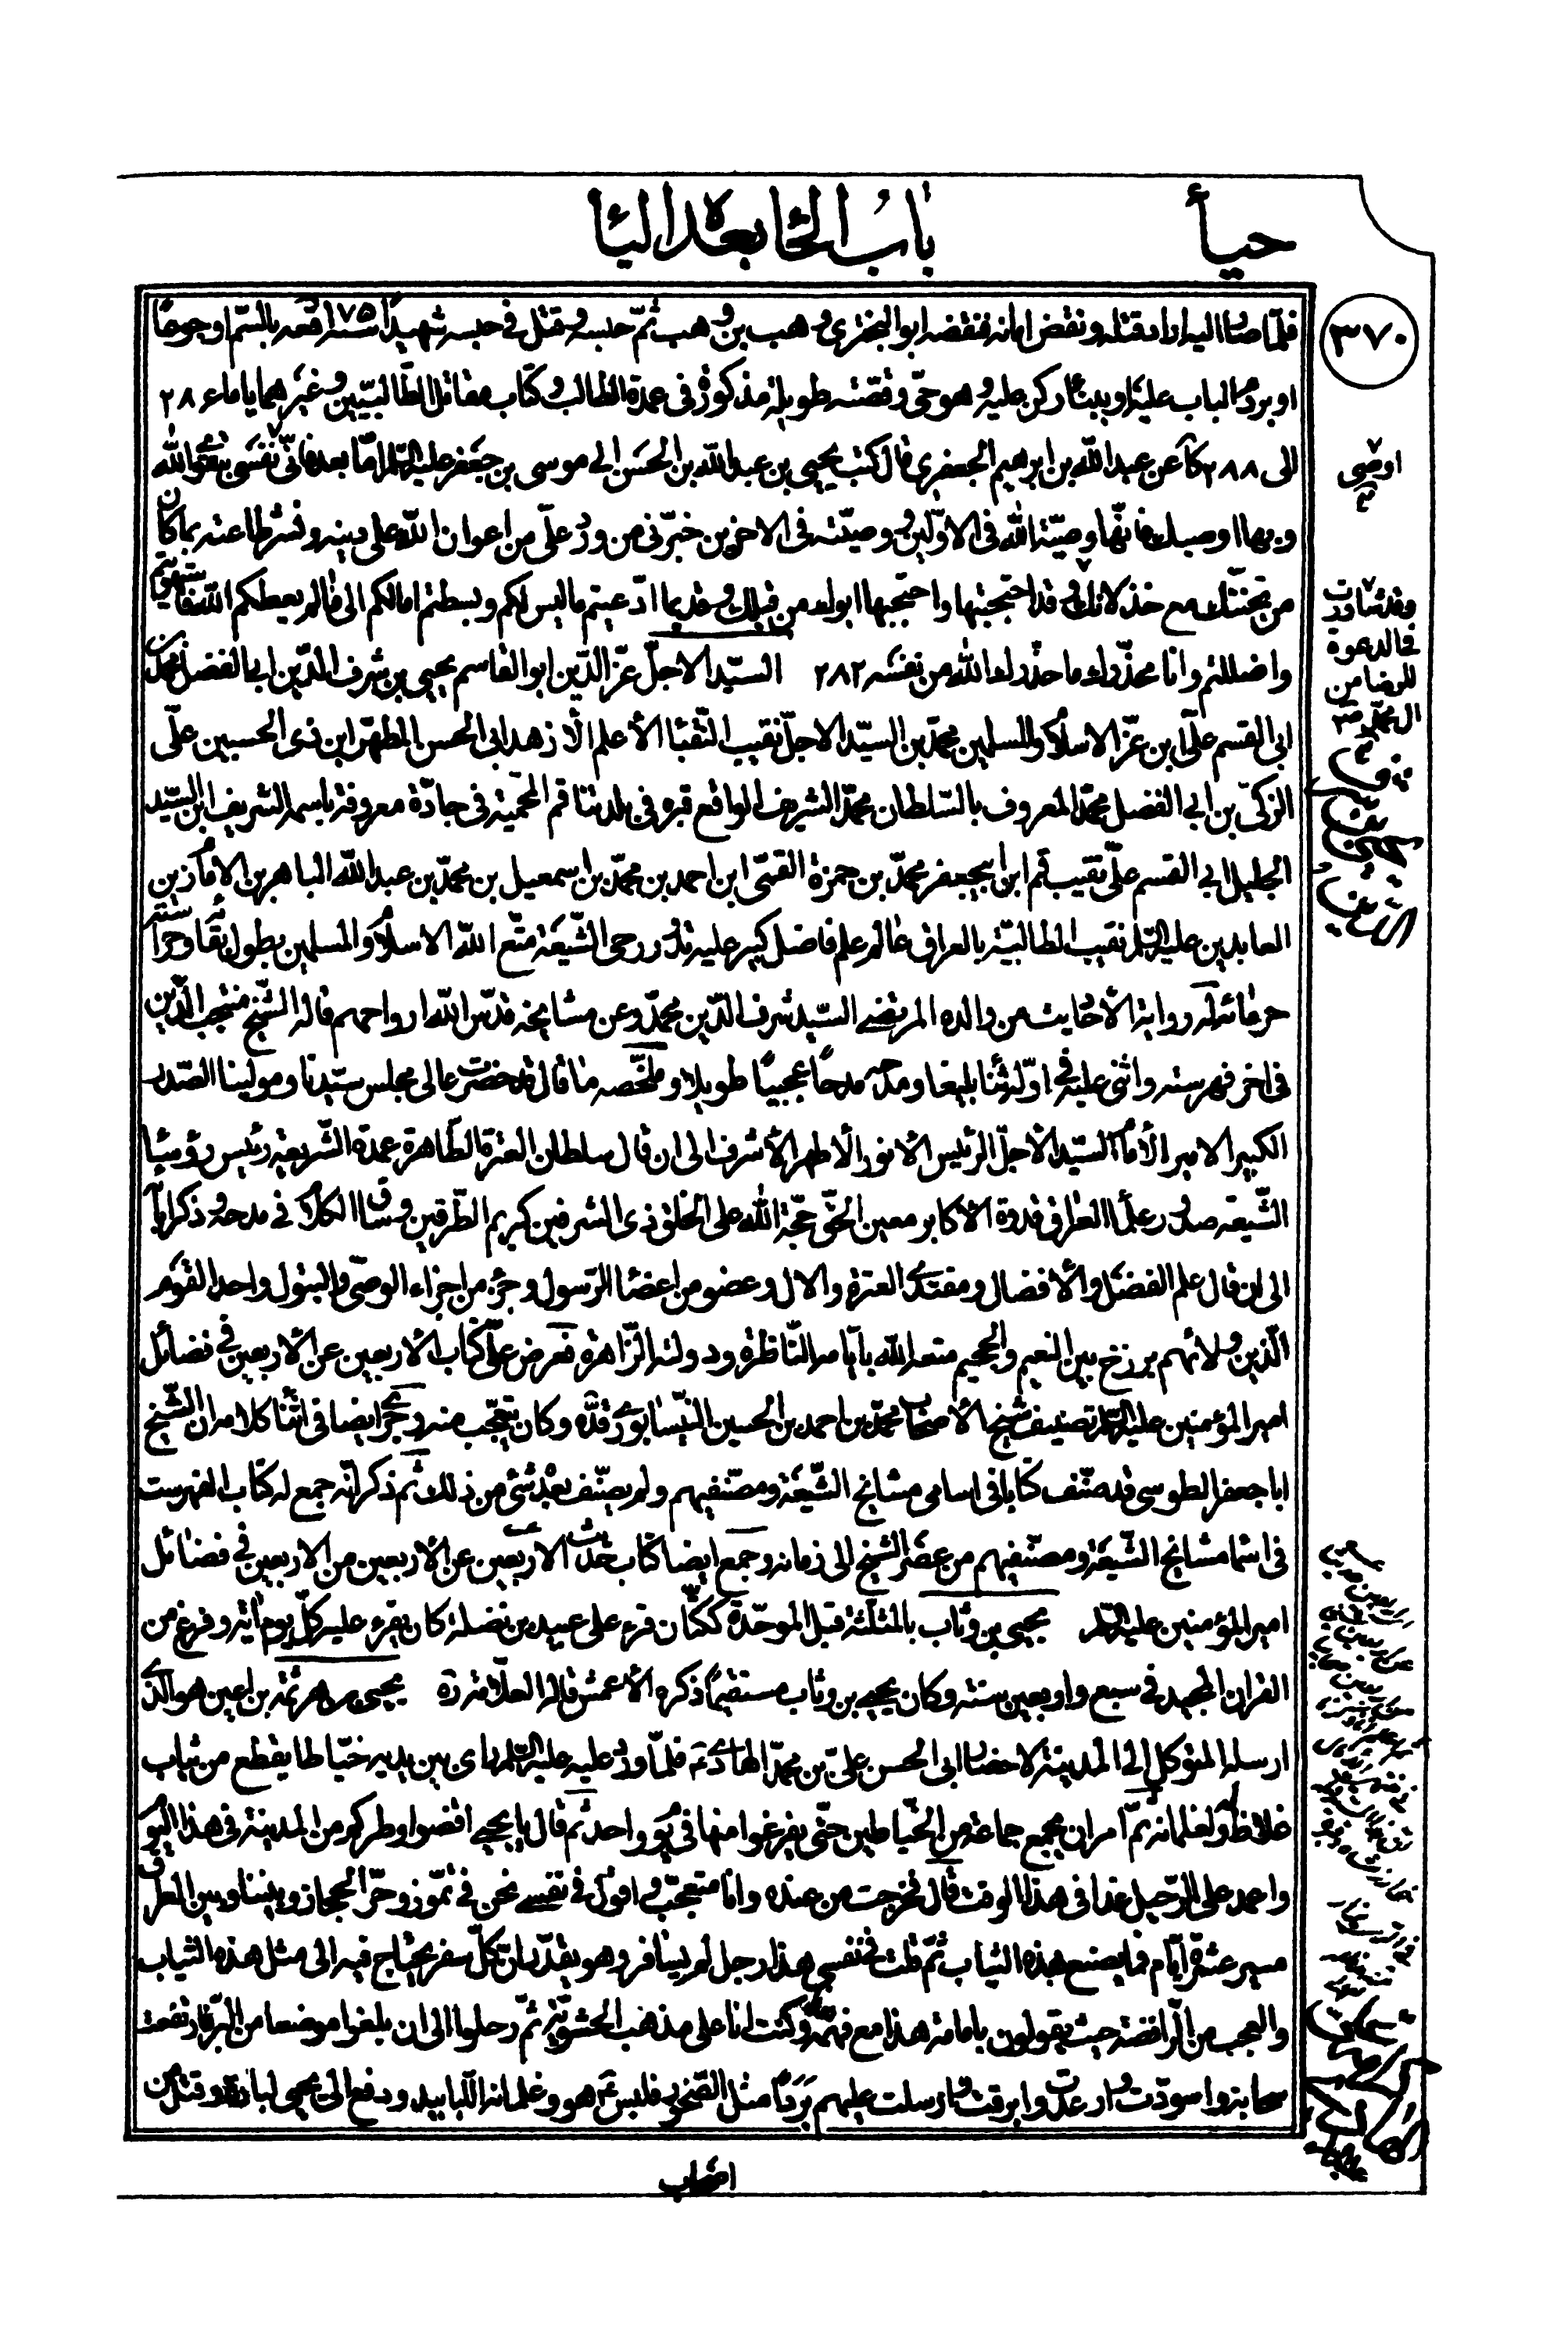 حيأ
باب الحا بعده اليا
٣٧٠
فلما صار اليه اراد قتله ونقض امانه فنقضه ابو البختري وهب بن وهب ثم حبسه وقتل في حبسه شهيدا سنة ١٧٥ بالسم او جوعا
او بردم الباب عليه او ببناء ركن عليه وهو حي وقصته طويلة مذكورة في عمدة الطالب وكتاب مقاتل الطالبيين وغيرهما يا ماء ٢٨٦
الى ٢٨٨ كا عن عبد الله بن ابرهيم الجعفري قال كتب يحيى بن عبد الله بن الحسن الى موسى بن جعفر عليه السلم اما بعد فاني نفسي بتقوى الله
وبها اوصيك فانها وصية الله في الاولين ووصيته في الاخرين خبرني من ورد علي من اعوان الله على دينه ونشر طاعته بما كان
من تحننك مع خذلانك وقد احتجبتها واحتجبها ابوك من قبلك وقديما ادعيتم ما ليس لكم وبسطتم امالكم الى ما لم يعطكم الله فاستهويتم
واضللتم وانا محذرك ما حذرك الله من نفسه ٢٨٢ السيد الاجل عز الدين ابو القاسم يحيى بن شرف الدين ابي الفضل محمد بن
ابي القسم علي بن عز الاسلام والمسلمين محمد بن السيد الاجل نقيب النقباء الأعلم الأزهد ابي الحسن المطهر ابن ذي الحسبين علي
الزكي بن ابي الفضل محمد المعروف بالسلطان محمد الشريف الواقع قبره في بلدتنا قم المحمية في جادة معروفة باسمه الشريف ابن السيد
الجليل ابي القسم علي نقيب قم ابن ابيجعفر محمد بن حمزة القمي ابن احمد بن محمد بن اسمعيل بن محمد بن عبد الله الباهر بن الامام زين
العابدين عليه السلم نقيب الطالبية بالعراق عالم علم فاضل كبير عليه تدور رحى الشيعة متع الله الاسلام والمسلمين بطول بقائه وحراسة
حوبائه له رواية الأحاديث من والده المرتضى السيد شرف الدين محمد وعن مشايخه قدس الله ارواحهم قاله الشيخ منتجب الدين
في اخر فهرسته واثنى عليه في اوله ثنا بليغا ومدحه مدحا عجيبا طويلا وملخصه ما قال قد حضرت عالي مجلس سيدنا ومولينا الصدر
الكبير الامير الأمام السيد الأجل الرئيس الأنور الأطهر الأشرف الى ان قال سلطان العترة الطاهرة عمدة الشريعة رئيس رؤساء
الشيعة صدر علماء العراق قدوة الأكابر معين الحق حجة الله على الخلق ذي الشرفين كريم الطرفين وساق الكلام في مدحه وذكر ابائه
الى ان قال علم الفضل والأفضال ومقتدى العترة والال وعضو من اعضا الرسول وجزء من اجزاء الوصي والبتول واحد القوم
الذين ولائهم برزخ بين النعيم والجحيم متعه الله بايامه الناظرة ودولته الزاهرة فعرض علي كتاب الأربعين عن الأربعين في فضائل
امير المؤمنين عليه السلم تصنيف شيخ الأصحاب محمد بن احمد بن الحسين النيسابوري قده وكان يتعجب منه وجرى ايضا في اثناء كلامه ان الشيخ
ابا جعفر الطوسي قد صنف كتابا في اسامي مشايخ الشيعة ومصنفيهم ولم يصنف بعده شئ من ذلك ثم ذكر انه جمع له كتاب الفهرست
في اسما مشايخ الشيعة ومصنفيهم من عصر الشيخ الى زمانه وجمع ايضا كتاب حديث الاربعين عن الأربعين من الاربعين في فضائل
امير المؤمنين عليه السلم يحيى بن وثاب بالمثلثة قبل الموحدة ككتان قرء على عبيد بن نضلة كان يقرء عليه كل يوم اية وفرغ من
القران المجيد في سبع واربعين سنة وكان يحيى بن وثاب مستقيما ذكره الأعمش قاله العلامة ره يحيى بن هرثمة بن اعين هو الذي
ارسله المتوكل الى المدينة لاحضار ابي الحسن علي بن محمد الهادي ع فلما ورد عليه عليه السلم راى بين يديه خياطا يقطع من ثياب
غلاظ له ولغلمانه ثم امر ان يجمع جماعة من الخياطين حتى يفرغوا منها في يوم واحد ثم قال يا يحيى اقضوا وطركم من المدينة في هذا اليوم
واعمد على الرحيل غدا في هذا الوقت قال فخرجت من عنده وانا متعجب واقول في نفسي نحن في تموز وحر الحجاز وبيننا وبين العراق
مسير عشرة ايام فما يصنع بهذه الثياب ثم قلت في نفسي هذا رجل لم يسافر وهو يقدر ان كل سفر يحتاج فيه الى مثل هذه الثياب
والعجب من الرافضة حيث يقولون بامامة هذا مع فهمه وكنت انا على مذهب الحشوية ثم رحلوا الى ان بلغوا موضعا من البر فارتفعت
سحابة واسودت وارعدت وابرقت وارسلت عليهم بردا مثل الصخور فلبس ع هو وغلمانه اللبابيد ودفع الى يحيى لبادة وقتل من
اصحاب
اوصي
وقد شاورت
في الدعوة
للرضا من
ال محمد ص